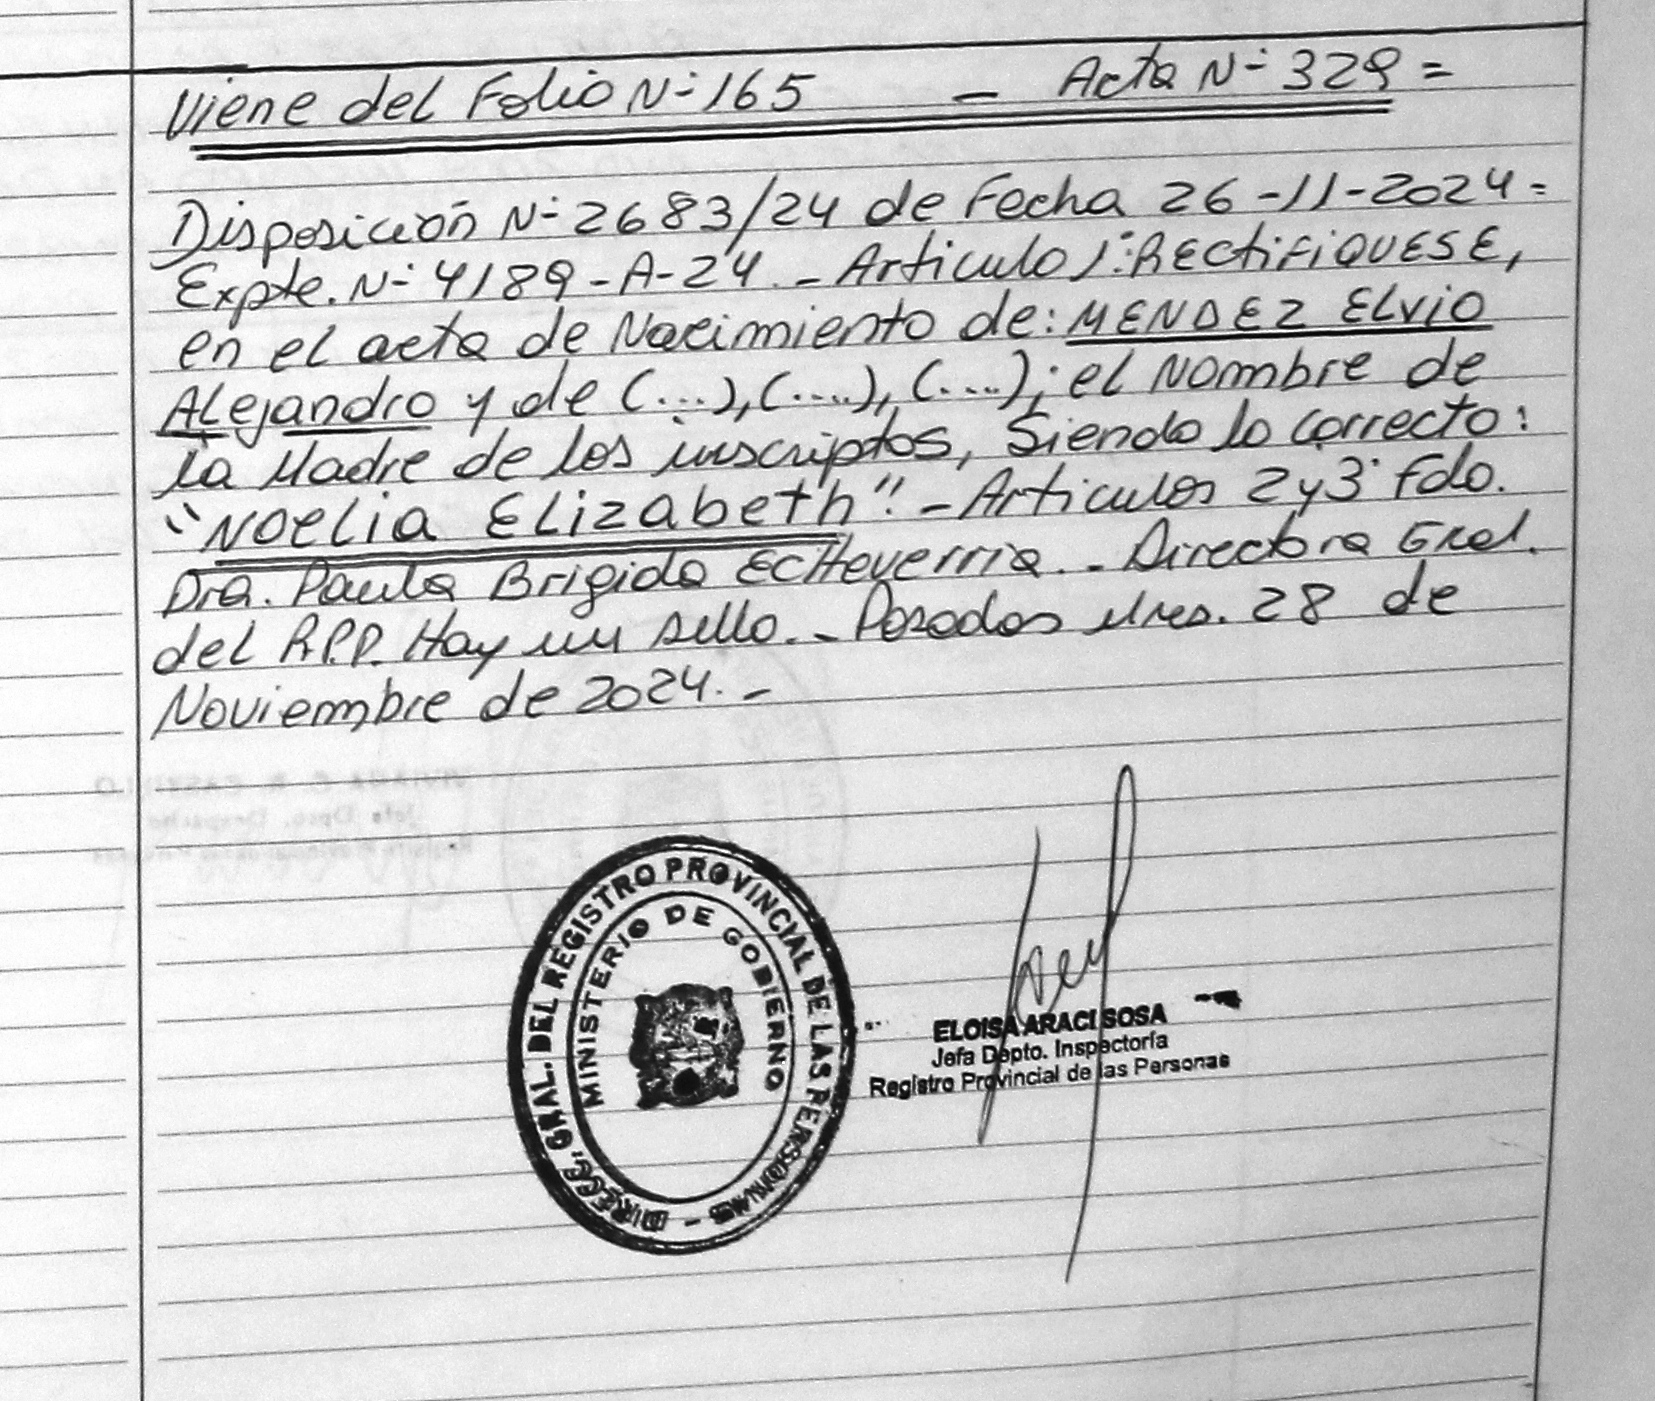 Viene del Folio N- 165 - Acta N- 329 =
Disposición N- 2683/24 de Fecha 26-11-2024 =
Expte. N- 4189-A-24. - Articulo 1°: RECTIFIQUESE,
en el acta de Nacimiento de: MENDEZ ELVIO
ALejandro y de (...), (....), (....); el Nombre de
la Madre de los inscriptos, Siendo lo correcto:
"NOELIA ELIZABETH". - Articulos 2 y 3° Fdo.
Dra. Paula Brigida Echeverria. - Directora Gral.
del R.P.P. Hay un sello. - Posadas Mnes. 28 de
Noviembre de 2024. -
DIRECC. GRAL. DEL REGISTRO PROVINCIAL DE LAS PERSONAS -
MINISTERIO DE GOBIERNO
ELOISA ARACI SOSA
Jefa Depto. Inspectoría
Registro Provincial de las Personas